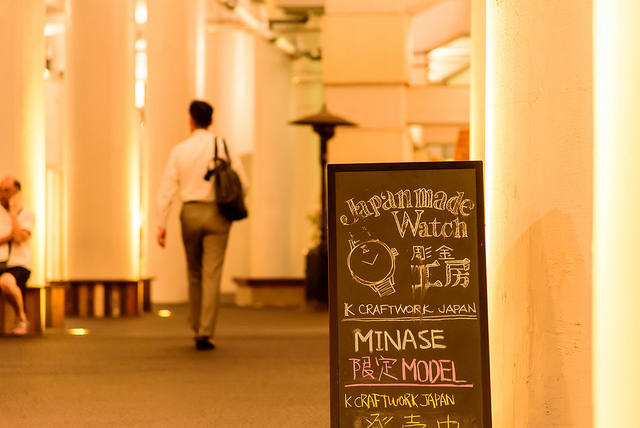 Japan made
Watch
彫金
工房
K CRAFTWORK JAPAN
MINASE
限定 MODEL
K CRAFTWORK JAPAN
発売中